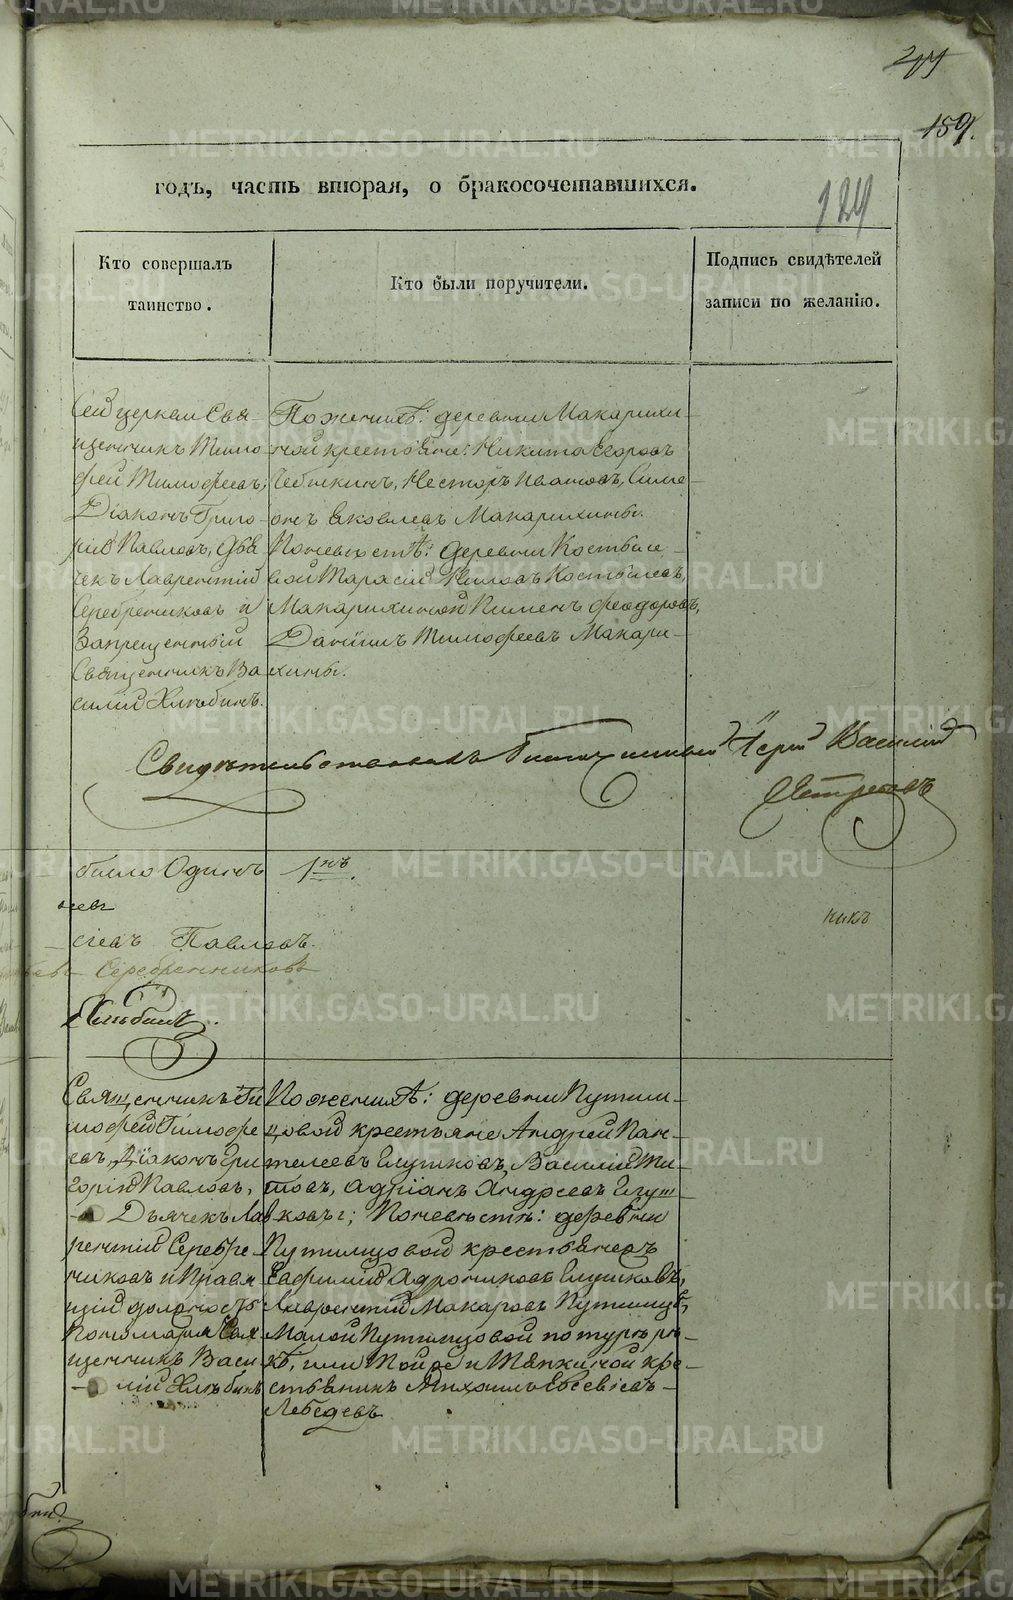 159.
124
годъ, часть вторая, о бракосочетавшихся.
Кто совершалъ
таинство.
Кто были поручители.
Подпись свидѣтелей
записи по желанію.
Сей церкви Свя-
щенникъ Тимо
фей Тимофеевъ;
Діаконъ Григо-
рій Павловъ, Дья
чекъ Лаврентій
Серебренниковъ и
Запрещенный
Священникъ Ва
силій Хлыбинъ.
По женихѣ: деревни Макарихи-
ной крестьяне: Никита Егоровъ
Несторъ Ивановъ, Симе-
онъ Яковлевъ Макарихины.
По невѣстѣ: деревни Костыле-
вой Тарасій Ниловъ Костылевъ,
Макарихиной Пименъ Феодоровъ,
Даніилъ Тимофеевъ Макари-
хины.
Свидѣтельствовалъ Благочинный Іерей Василій
было Одинъ 1нъ.
никъ
Павловъ.
Серебренниковъ
Священникъ Ти
мофей Тимофе
евъ, Діаконъ Гри
горій Павловъ,
Дьячекъ Лав
рентій Серебре
нниковъ и Правя
щій должность
Пономаря Свя
щенникъ Васи
лій Хлыбинъ
По женихѣ: деревни Путими-
цовой крестьяне Андрей Пан-
телеевъ Глушковъ, Василій Ти-
товъ, Адріанъ Андреевъ Глуш-
ковы; По невѣстѣ: деревни
Путимцовой крестьянеръ
Евфимій Глушковъ,
Лаврентій Макаровъ Путимцовъ,
Малой Путимцовой по турѣ рѣ-
кѣ, или Тойже и Тяпкиной кре-
стьянинъ Михаилъ Евсевіевъ
Лебедевъ